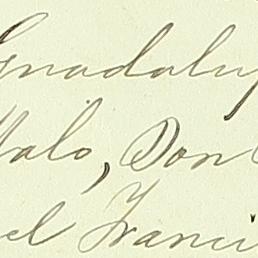 Guadalup
Malo, Don
el Franci